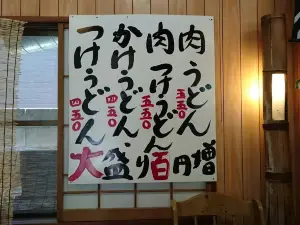 肉うどん 五五〇
肉つけうどん 五五〇
かけうどん 四五〇
つけうどん 四五〇
大盛り百円増